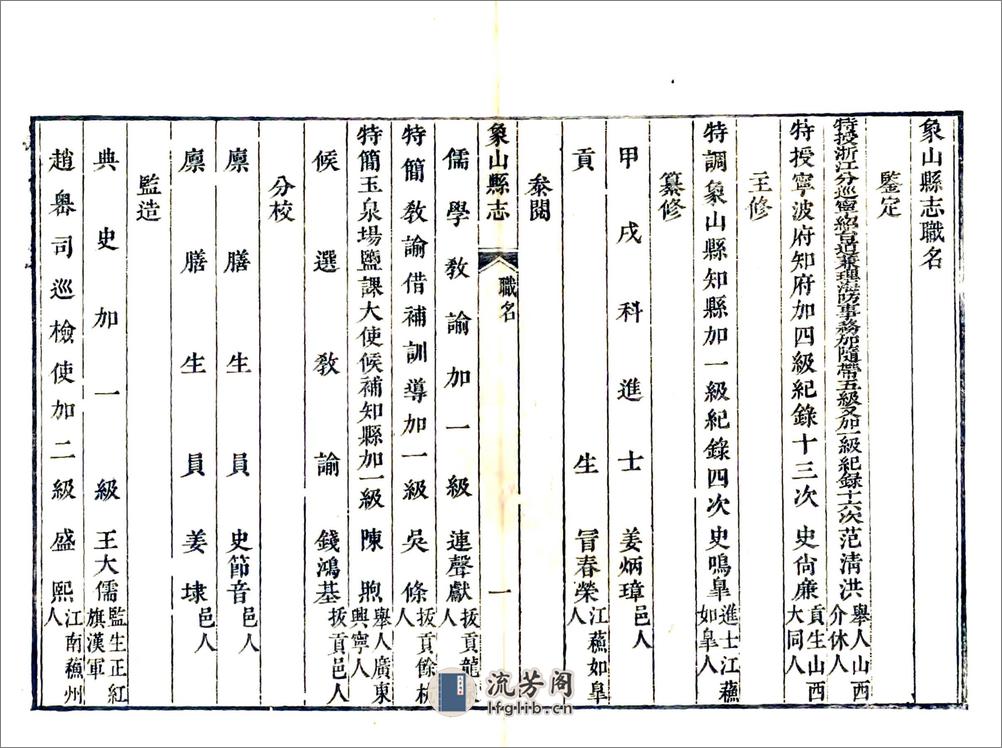 象山縣志職名
鑒定
特授浙江分巡寧紹台道兼理海防事務加隨帶五級又加一級紀錄十六次范清洪舉人山西介休人
特授寧波府知府加四級紀錄十三次史尙廉貢生山西大同人
主修
特調象山縣知縣加一級紀錄四次史鳴臯進士江蘇如臯人
纂修
甲戌科進士姜炳璋邑人
貢生冒春榮江蘇如臯人
叅閱
象山縣志 職名 一
儒學教諭加一級連聲獻拔貢龍人
特簡教諭借補訓導加一級吳條拔貢餘杭人
特簡玉泉場鹽課大使候補知縣加一級陳煦舉人廣東興寧人
候選教諭錢鴻基拔貢邑人
分校
廩膳生員史節音邑人
廩膳生員姜埭邑人
監造
典史加一級王大儒監生正紅旗漢軍
趙嶴司巡檢使加二級盛熙江南蘇州人
流芳阁
lfglib.cn